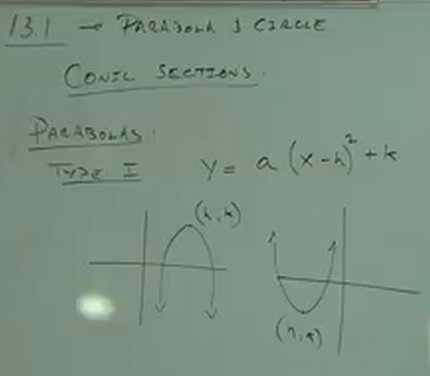 13.1 → PARABOLA & CIRCLE
CONIC SECTIONS.
PARABOLAS.
TYPE I y = a (x-h)² + k
(h, k)
(h, k)